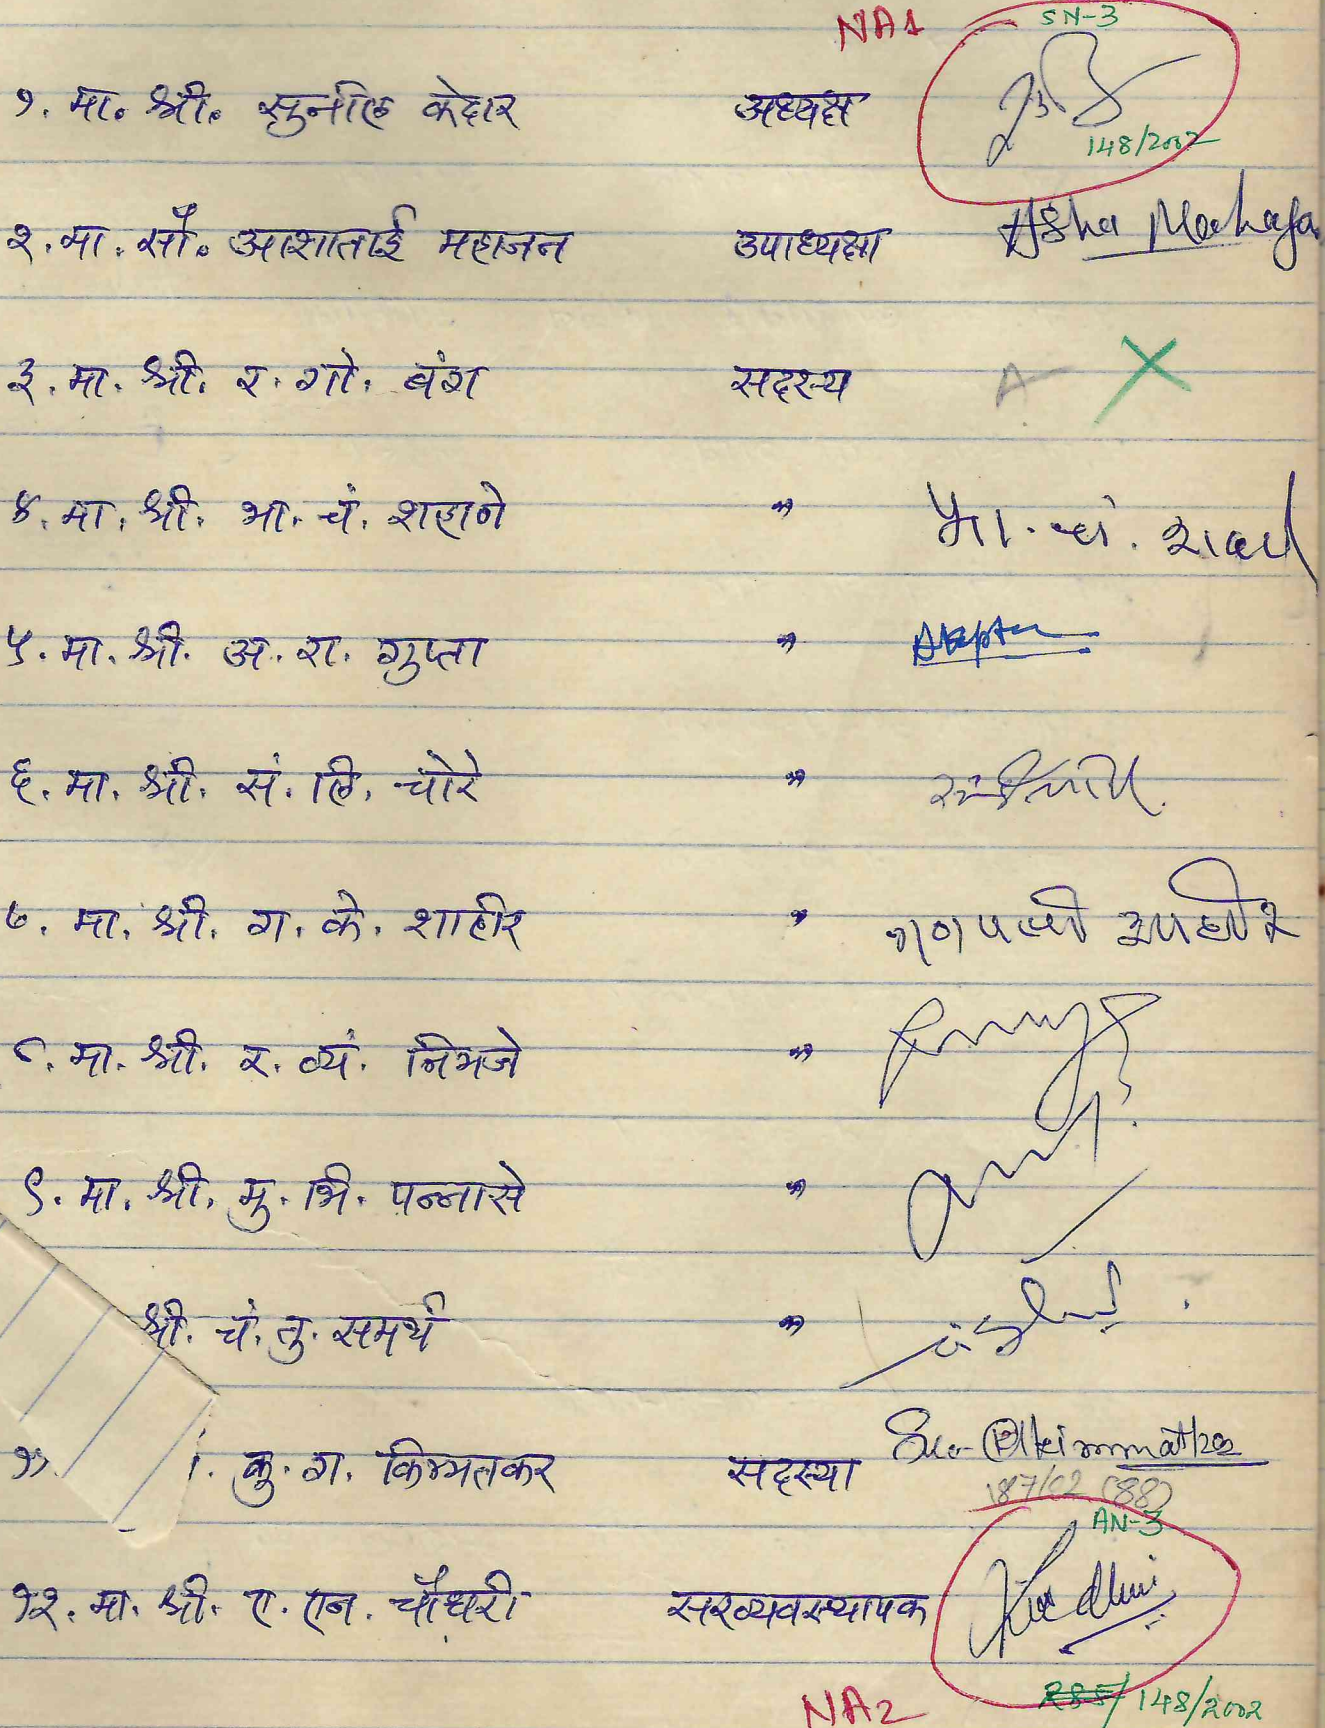 NA1 SN-3
१. मा. श्री. सुनील केदार अध्यक्ष
148/2002
२. मा. सौ. आशाताई महाजन उपाध्यक्षा Asha Mahajan
३. मा. श्री. र. गो. बंग सदस्य A X
४. मा. श्री. भा. चं. शहाणे " भा. चं.
५. मा. श्री. अ. रा. गुप्ता "
६. मा. श्री. सं. लि. चोरे "
७. मा. श्री. ग. के. शाहीर " गणपती शाहीर
८. मा. श्री. र. व्यं. निमजे "
९. मा. श्री. मु. भि. पन्नासे "
श्री. चं. तु. समर्थ "
११. कु. ग. किम्मतकर सदस्या
187/02 (88)
AN-3
१२. मा. श्री. ए. एन. चौधरी सरव्यवस्थापक
NA2 285/148/2002